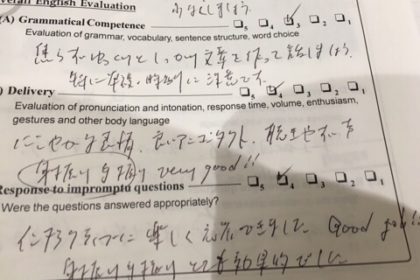 Overall English Evaluation
少なくしましょう。
(A) Grammatical Competence ☐5 ☐4 ☑3 ☐2 ☐1
Evaluation of grammar, vocabulary, sentence structure, word choice
焦らずゆっくりとしっかり文章を作って話しましょう。
特に単語、時制に注意です。
) Delivery ☐5 ☑4 ☐3 ☐2 ☐1
Evaluation of pronunciation and intonation, response time, volume, enthusiasm,
gestures and other body language
にこやかな表情、良いアイコンタクト、
身振り手振り very good!!
Response to impromptu questions ☐5 ☑4 ☐3 ☐2 ☐1
Were the questions answered appropriately?
インタラクティブに楽しく応答できました。Good job!!
身振り手振りとても効果的でした。